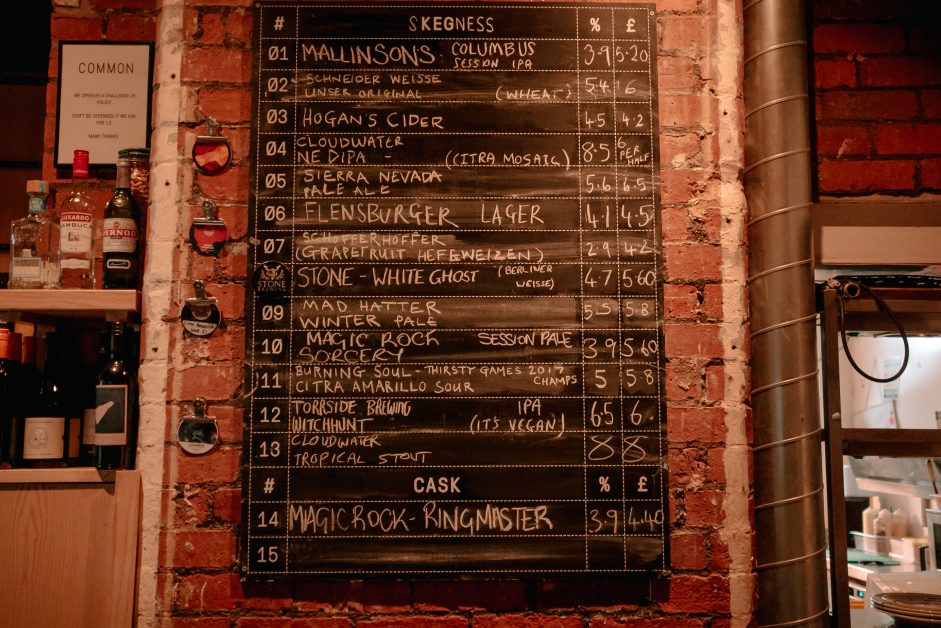 COMMON
WE OPERATE A CHALLENGE 25
POLICY.
DON'T BE OFFENDED IF WE ASK
FOR I.D
MANY THANKS
LUXARDO
SAMBUCA
PERNOD
# SKEGNESS % £
01 MALLINSONS COLUMBUS SESSION IPA 3.9 5.20
02 SCHNEIDER WEISSE
UNSER ORIGINAL (WHEAT) 5.4 6
03 HOGAN'S CIDER 4.5 4.2
04 CLOUDWATER
NE DIPA - (CITRA MOSAIC) 8.5 6 PER HALF
05 SIERRA NEVADA
PALE ALE 5.6 6.5
06 FLENSBURGER LAGER 4.1 4.5
07 SCHOFFERHOFFER
(GRAPEFRUIT HEFEWEIZEN) 2.9 4.2
STONE BREWING STONE - WHITE GHOST (BERLINER WEISSE) 4.7 5.60
09 MAD HATTER
WINTER PALE 5.5 5.8
10 MAGIC ROCK SESSION PALE
SORCERY 3.9 5.60
11 BURNING SOUL - THIRSTY GAMES 2017 CHAMPS
CITRA AMARILLO SOUR 5 5.8
12 TORRSIDE BREWING IPA
WITCHHUNT (IT'S VEGAN) 6.5 6.
13 CLOUDWATER
TROPICAL STOUT 8 8
# CASK % £
14 MAGIC ROCK - RINGMASTER 3.9 4.40
15